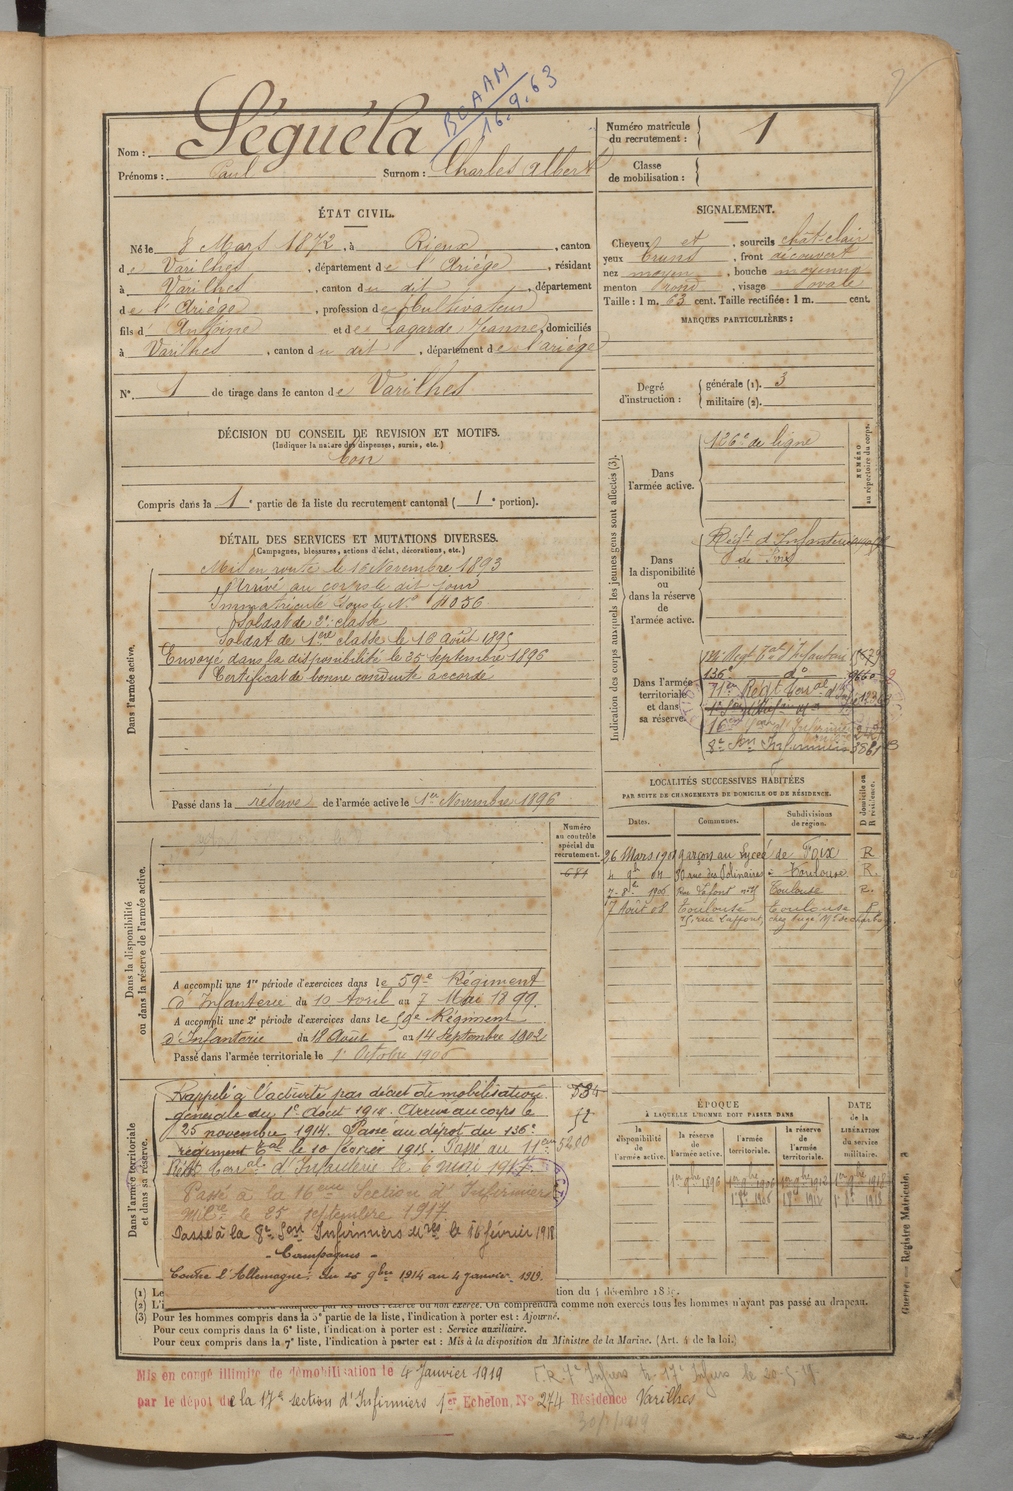 BCAAM
16.9.63
Nom : Séguéla
Prénoms : Paul Surnom : Charles Albert
Numéro matricule
du recrutement : 1
Classe
de mobilisation :
ÉTAT CIVIL.
Né le 8 Mars 1872, à Rieux, canton
de Varilhes, département de l'Ariége, résidant
à Varilhes, canton du dit, département
de l'Ariége, profession de Cultivateur
fils d'Antoine et de Lagarde Jeanne, domiciliés
à Varilhes, canton du dit, département de l'ariége
N° 1 de tirage dans le canton de Varilhes
SIGNALEMENT.
Cheveux et, sourcils chât-clair
yeux bruns, front découvert
nez moyen, bouche moyenne
menton rond, visage ovale
Taille : 1 m. 63 cent. Taille rectifiée : 1 m. cent.
MARQUES PARTICULIÈRES :
Degré
d'instruction :
générale (1). 3
militaire (2).
DÉCISION DU CONSEIL DE REVISION ET MOTIFS.
(Indiquer la nature des dispenses, sursis, etc.)
Bon
Compris dans la 1e partie de la liste du recrutement cantonal ( 1e portion).
DÉTAIL DES SERVICES ET MUTATIONS DIVERSES.
(Campagnes, blessures, actions d'éclat, décorations, etc.)
Dans l'armée active.
Mis en route le 16 Novembre 1893
Arrivé au corps le dit jour
Immatriculé sous le N° 4056
Soldat de 2e classe
Soldat de 1ère classe le 16 août 1895
Envoyé dans la disponibilité le 25 septembre 1896
Certificat de bonne conduite accordé
Passé dans la réserve de l'armée active le 1er Novembre 1896
Indication des corps auxquels les jeunes gens sont affectés (3).
NUMÉRO
au répertoire du corps.
Dans
l'armée active.
126e de ligne
Dans
la disponibilité
ou
dans la réserve
de
l'armée active.
Régt d'Infanterie
de Foix
Dans l'armée
territoriale
et dans
sa réserve.
136e do
8e Son Infirmiers
LOCALITÉS SUCCESSIVES HABITÉES
PAR SUITE DE CHANGEMENTS DE DOMICILE OU DE RÉSIDENCE.
D domicile ou
R résidence.
Dates. Communes. Subdivisions
de région.
26 Mars 1901 garçon au Lycée de Foix R
Toulouse R.
Toulouse R.
17 Août 08 Toulouse Toulouse
Dans la disponibilité
ou dans la réserve de l'armée active.
Numéro
au contrôle
spécial du
recrutement.
681
A accompli une 1re période d'exercices dans le 59e Régiment
d'Infanterie du 10 Avril au 7 Mai 1899.
A accompli une 2e période d'exercices dans le 59e Régiment
d'Infanterie du 18 Août au 14 Septembre 1902
Passé dans l'armée territoriale le 1er Octobre 1906
Dans l'armée territoriale
et dans sa réserve.
Rappelé à l'activité par décret de mobilisation
générale du 1er Août 1914. Arrivé au corps le
25 novembre 1914. Passé au dépôt du 136e
régiment Tal le 10 février 1915. Passé au 71ème
Régt Terral d'Infanterie le 6 mai 1917.
Passé à la 16ème Section d'Infirmiers
Milre le 25 septembre 1917
Passé à la 8e Son Infirmiers Mres le 16 février 1918
- Campagnes -
Contre l'Allemagne : du 25 9bre 1914 au 4 janvier 1919.
ÉPOQUE
À LAQUELLE L'HOMME DOIT PASSER DANS
la
disponibilité
de
l'armée active.
la réserve
de
l'armée active.
l'armée
territoriale.
la réserve
de
l'armée
territoriale.
DATE
de la
LIBÉRATION
du
service
militaire.
1er 9bre 1896
(1) Le
(3) Pour les hommes compris dans la 5e partie de la liste, l'indication à porter est : Ajourné.
Pour ceux compris dans la 6e liste, l'indication à porter est : Service auxiliaire.
Pour ceux compris dans la 7e liste, l'indication à porter est : Mis à la disposition du Ministre de la Marine. (Art. 4 de la loi.)
Guerre. — Registre Matricule, A
Mis en congé illimité de démobilisation le 4 Janvier 1919
par le dépôt de la 17e section d'Infirmiers 1er Echelon, N° 274 Résidence Varilhes